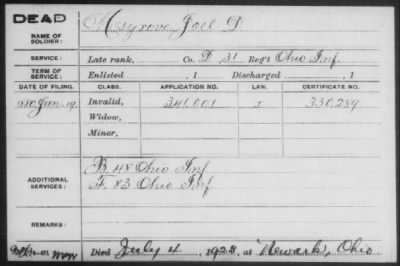 DEAD
NAME OF SOLDIER: Joel D.
SERVICE: Late rank, Co. D 31 Reg't Ohio Inf.
TERM OF SERVICE: Enlisted , 1 Discharged , 1
DATE OF FILING. CLASS. APPLICATION NO. LAW. CERTIFICATE NO.
1880 Jan. 19. Invalid, 341.001 330,289
Widow,
Minor,
ADDITIONAL SERVICES: B. 48 Ohio Inf
F. 83 Ohio Inf.
REMARKS:
Died July 4, 1928 at Newark, Ohio.